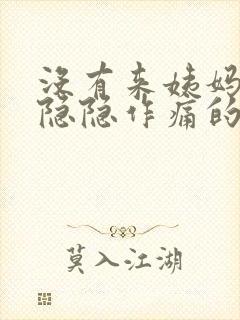 没有来姨妈
隐隐作痛的
莫入江湖